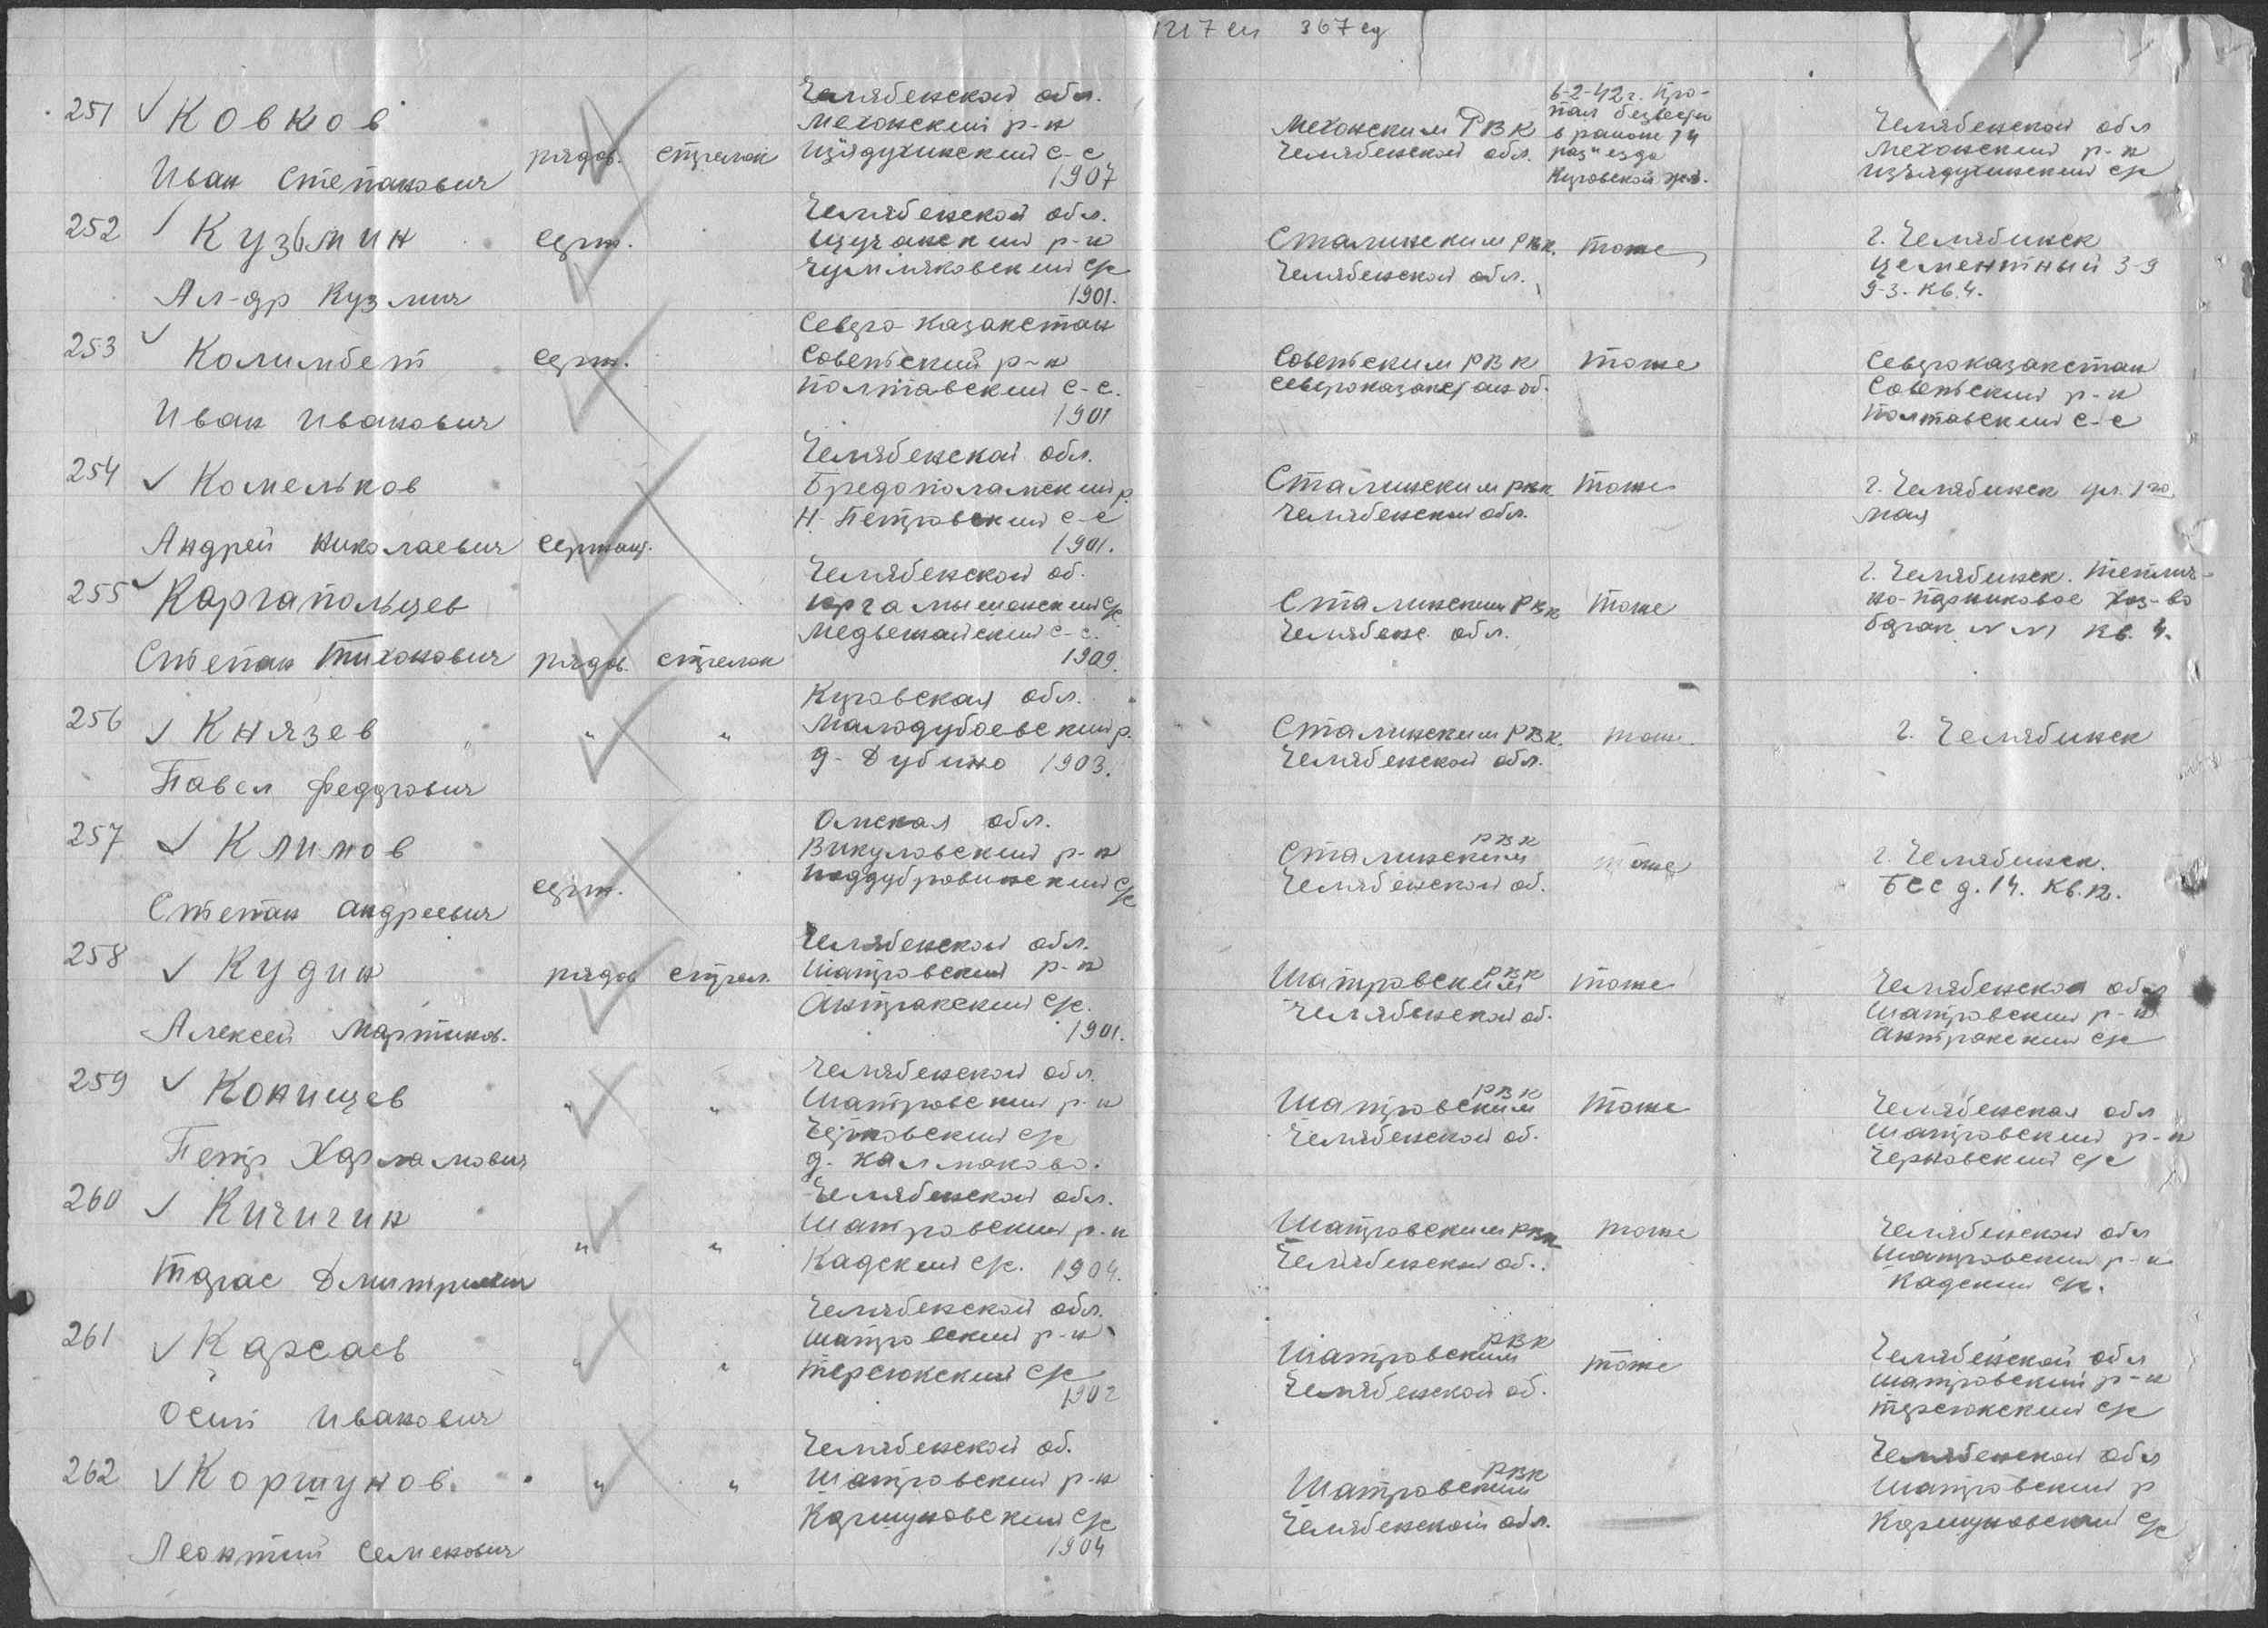 1217 сп 367 сд
251 Ковков
Иван Степанович
рядов. стрелок
Челябинской обл.
Мехонский р-н
Изъядухинский с-с
1907
Мехонским РВК
Челябинской обл.
6-2-42 г. Про-
пал безвести
в районе 14
раз"езда
Кировской ж.д.
Челябинской обл
Мехонский р-н
Изъядухинский с/с
252 Кузьмин
Ал-др Кузмич
серж.
Челябинской обл.
Щучанский р-н
Чумляковский с/с
1901.
Сталинским РВК.
Челябинской обл.
тоже
г. Челябинск
Цементный 3-9
9-3. кв. 4.
253 Калимбет
Иван Иванович
серж.
Северо Казахстан
Советский р-н
Полтавский с-с.
1901
Советским РВК
Североказахстан об.
тоже
Североказахстан
Советский р-н
Полтавский с-с
254 Комельков
Андрей Николаевич
сержант.
Челябинской обл.
Бредополанский р.
Н-Петровский с-с
1901.
Сталинским РВК
Челябинской обл.
тоже
г. Челябинск ул. 1го
мая
255 Каргапольцев
Степан Тихонович
рядов. стрелок
Челябинской об.
Юргамышский с/с
Медвежайский с-с.
1909.
Сталинским РВК
Челябинс. обл.
тоже
г. Челябинск. Теплич-
но-парниковое хоз-во
барак N N1 кв. 4.
256 Князев
Павел Федорович
" "
Кировская обл.
Малодубовский р.
д. Дубино 1903.
Сталинским РВК.
Челябинской обл.
тоже.
г. Челябинск
257 Климов
Степан Андреевич
серж.
Омская обл.
Викуловский р-н
Поддубровинский с/с
Сталинским РВК
Челябинской об.
тоже
г. Челябинск.
БСС д. 14. кв. 12.
258 Кудин
Алексей Мартинов.
рядов стрел.
Челябинской обл.
Шатровский р-н
Антракский с/с.
1901.
Шатровским РВК
Челябинской об.
тоже
Челябинская обл
Шатровский р-н
Антракский с/с
259 Конищев
Петр Харламович
" "
Челябинской обл.
Шатровский р-н
Черновский с/с
д. Калмаково.
Шатровским РВК
Челябинской об.
тоже
Челябинская обл
Шатровский р-н
Черновский с/с
260 Кичигин
Тарас Дмитриевич
" "
Челябинской обл.
Шатровский р-н
Кадский с/с. 1904.
Шатровским РВК
Челябинской об.
тоже
Челябинской обл
Шатровский р-н
Кадский с/с.
261 Карсаев
Осип Иванович
" "
Челябинской обл.
Шатровский р-н
Терсюкский с/с
1902
Шатровским РВК
Челябинской об.
тоже
Челябинской обл
Шатровский р-н
Терсюкский с/с
262 Коршунов.
Леонтий Семенович
" "
Челябинской об.
Шатровский р-н
Коршуновский с/с
1904
Шатровский РВК
Челябинской обл.
Челябинской обл
Шатровский р
Коршуновский с/с